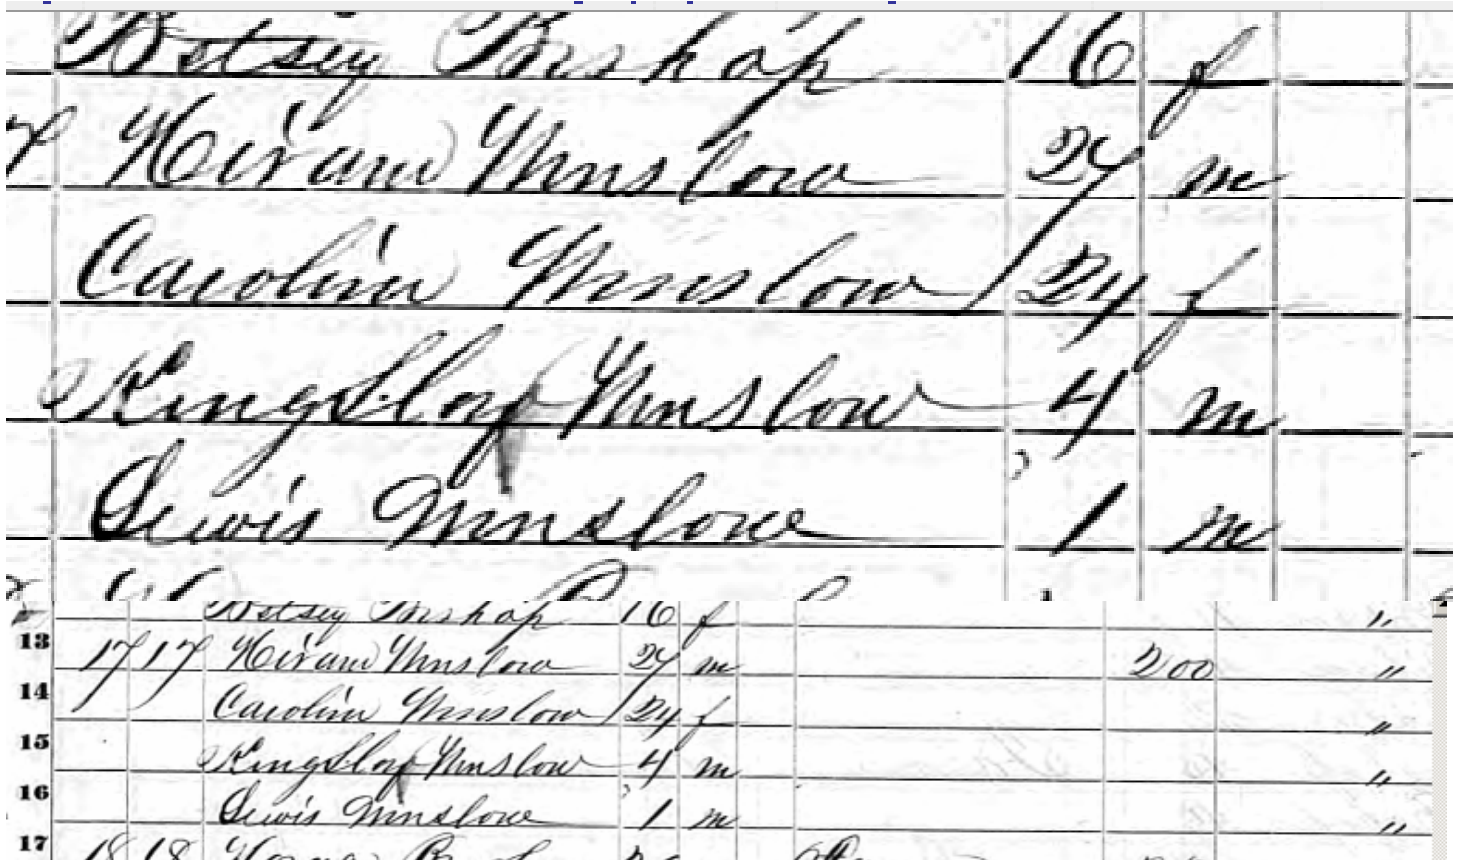 Betsey Bishop 16 f
7 Hiram Winslow 27 m
Carolin Winslow 24 f
Kingsley Winslow 4 m
Lewis Winslow 1 m
Betsey Bishop 16 f "
13 17 17 Hiram Winslow 27 m 200 "
14 Carolin Winslow 24 f "
15 Kingsley Winslow 4 m "
16 Lewis Winslow 1 m "
17 18 18